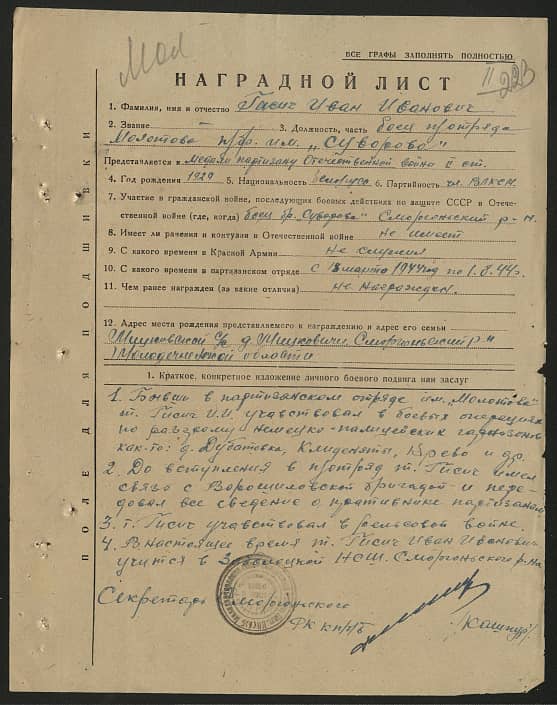 Мол
ВСЕ ГРАФЫ ЗАПОЛНЯТЬ ПОЛНОСТЬЮ
НАГРАДНОЙ ЛИСТ
II
223
1. Фамилия, имя и отчество Гасич Иван Иванович
2. Звание — 3. Должность, часть боец п/отряда
Молотова п/бр. им. „Суворова"
Представляется к медали партизану Отечественной войны II ст.
4. Год рождения 1929 5. Национальность белорусс 6. Партийность чл. ВЛКСМ.
7. Участие в гражданской войне, последующих боевых действиях по защите СССР и Отече-
ственной войне (где, когда) боец бр. „Суворова" Сморгонский р-н.
8. Имеет ли ранения и контузии в Отечественной войне не имеет
9. С какого времени в Красной Армии не служил
10. С какого времени в партизанском отряде с марта 1944 год по 1.8.44г.
11. Чем ранее награжден (за какие отличия) не награжден.
12. Адрес места рождения представляемого к награждению и адрес его семьи
С/с д. Сморгонский р-н
Молодечненской области
1. Краткое, конкретное изложение личного боевого подвига или заслуг
1. Бывши в партизанском отряде им. „Молотова"
т. Гасич И.И. учавствовал в боевых операциях
по разгрому немецко-полицейских гарнизонов
как-то: д. Дубатовка, Клиденяты, Крево и др.
2. До вступления в п/отряд т. Гасич имел
связь с Ворошиловской бригадой и пере-
довал все сведение о противнике партизанам
3. т. Гасич учавствовал в рельсовой войне.
4. В настоящее время т. Гасич Иван Иванович
учится в НСШ. Сморгоньского р-на
Секретарь Сморгонского
РК КП/б/Б
/Кашнур/
ПОЛЕ ДЛЯ ПОДШИВКИ